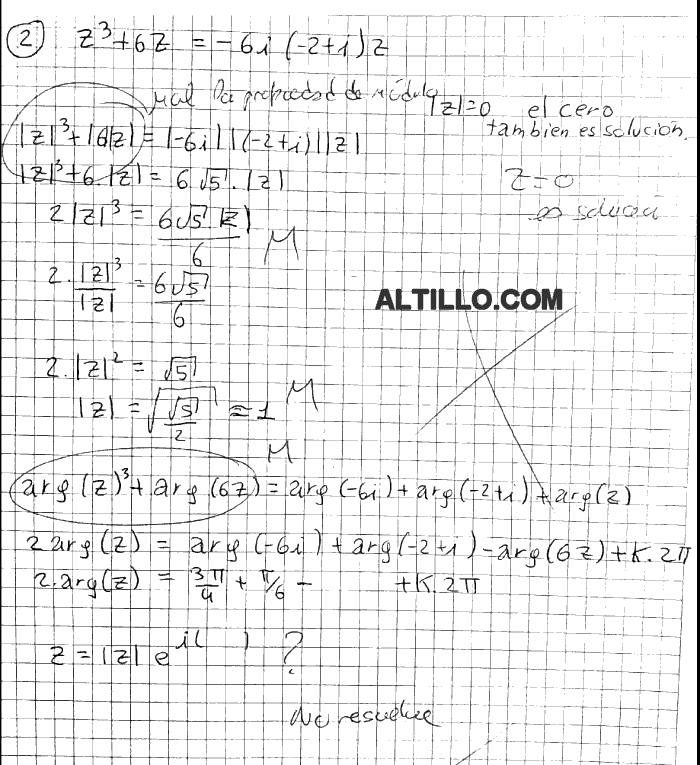 2 z³+6z = -6i (-2+i)z
mal la propiedad de módulo
|z|=0 el cero
tambien es solución.
|z|³+|6z| = |-6i||(-2+i)||z|
|z|³+6.|z| = 6√5.|z|
z=0
es solución
2|z|³ = 6√5|z| / 6 M
2.|z|³/|z| = 6√5/6
ALTILLO.COM
2.|z|² = √5
|z| = √(√5/2) ≈ 1 M
M
arg(z)³+arg(6z) = arg(-6i)+arg(-2+i)+arg(z)
2 arg(z) = arg(-6i)+arg(-2+i)-arg(6z)+K.2π
2.arg(z) = 3π/4 + π/6 - +K.2π
z = |z| e^i( ) ?
No resuelve